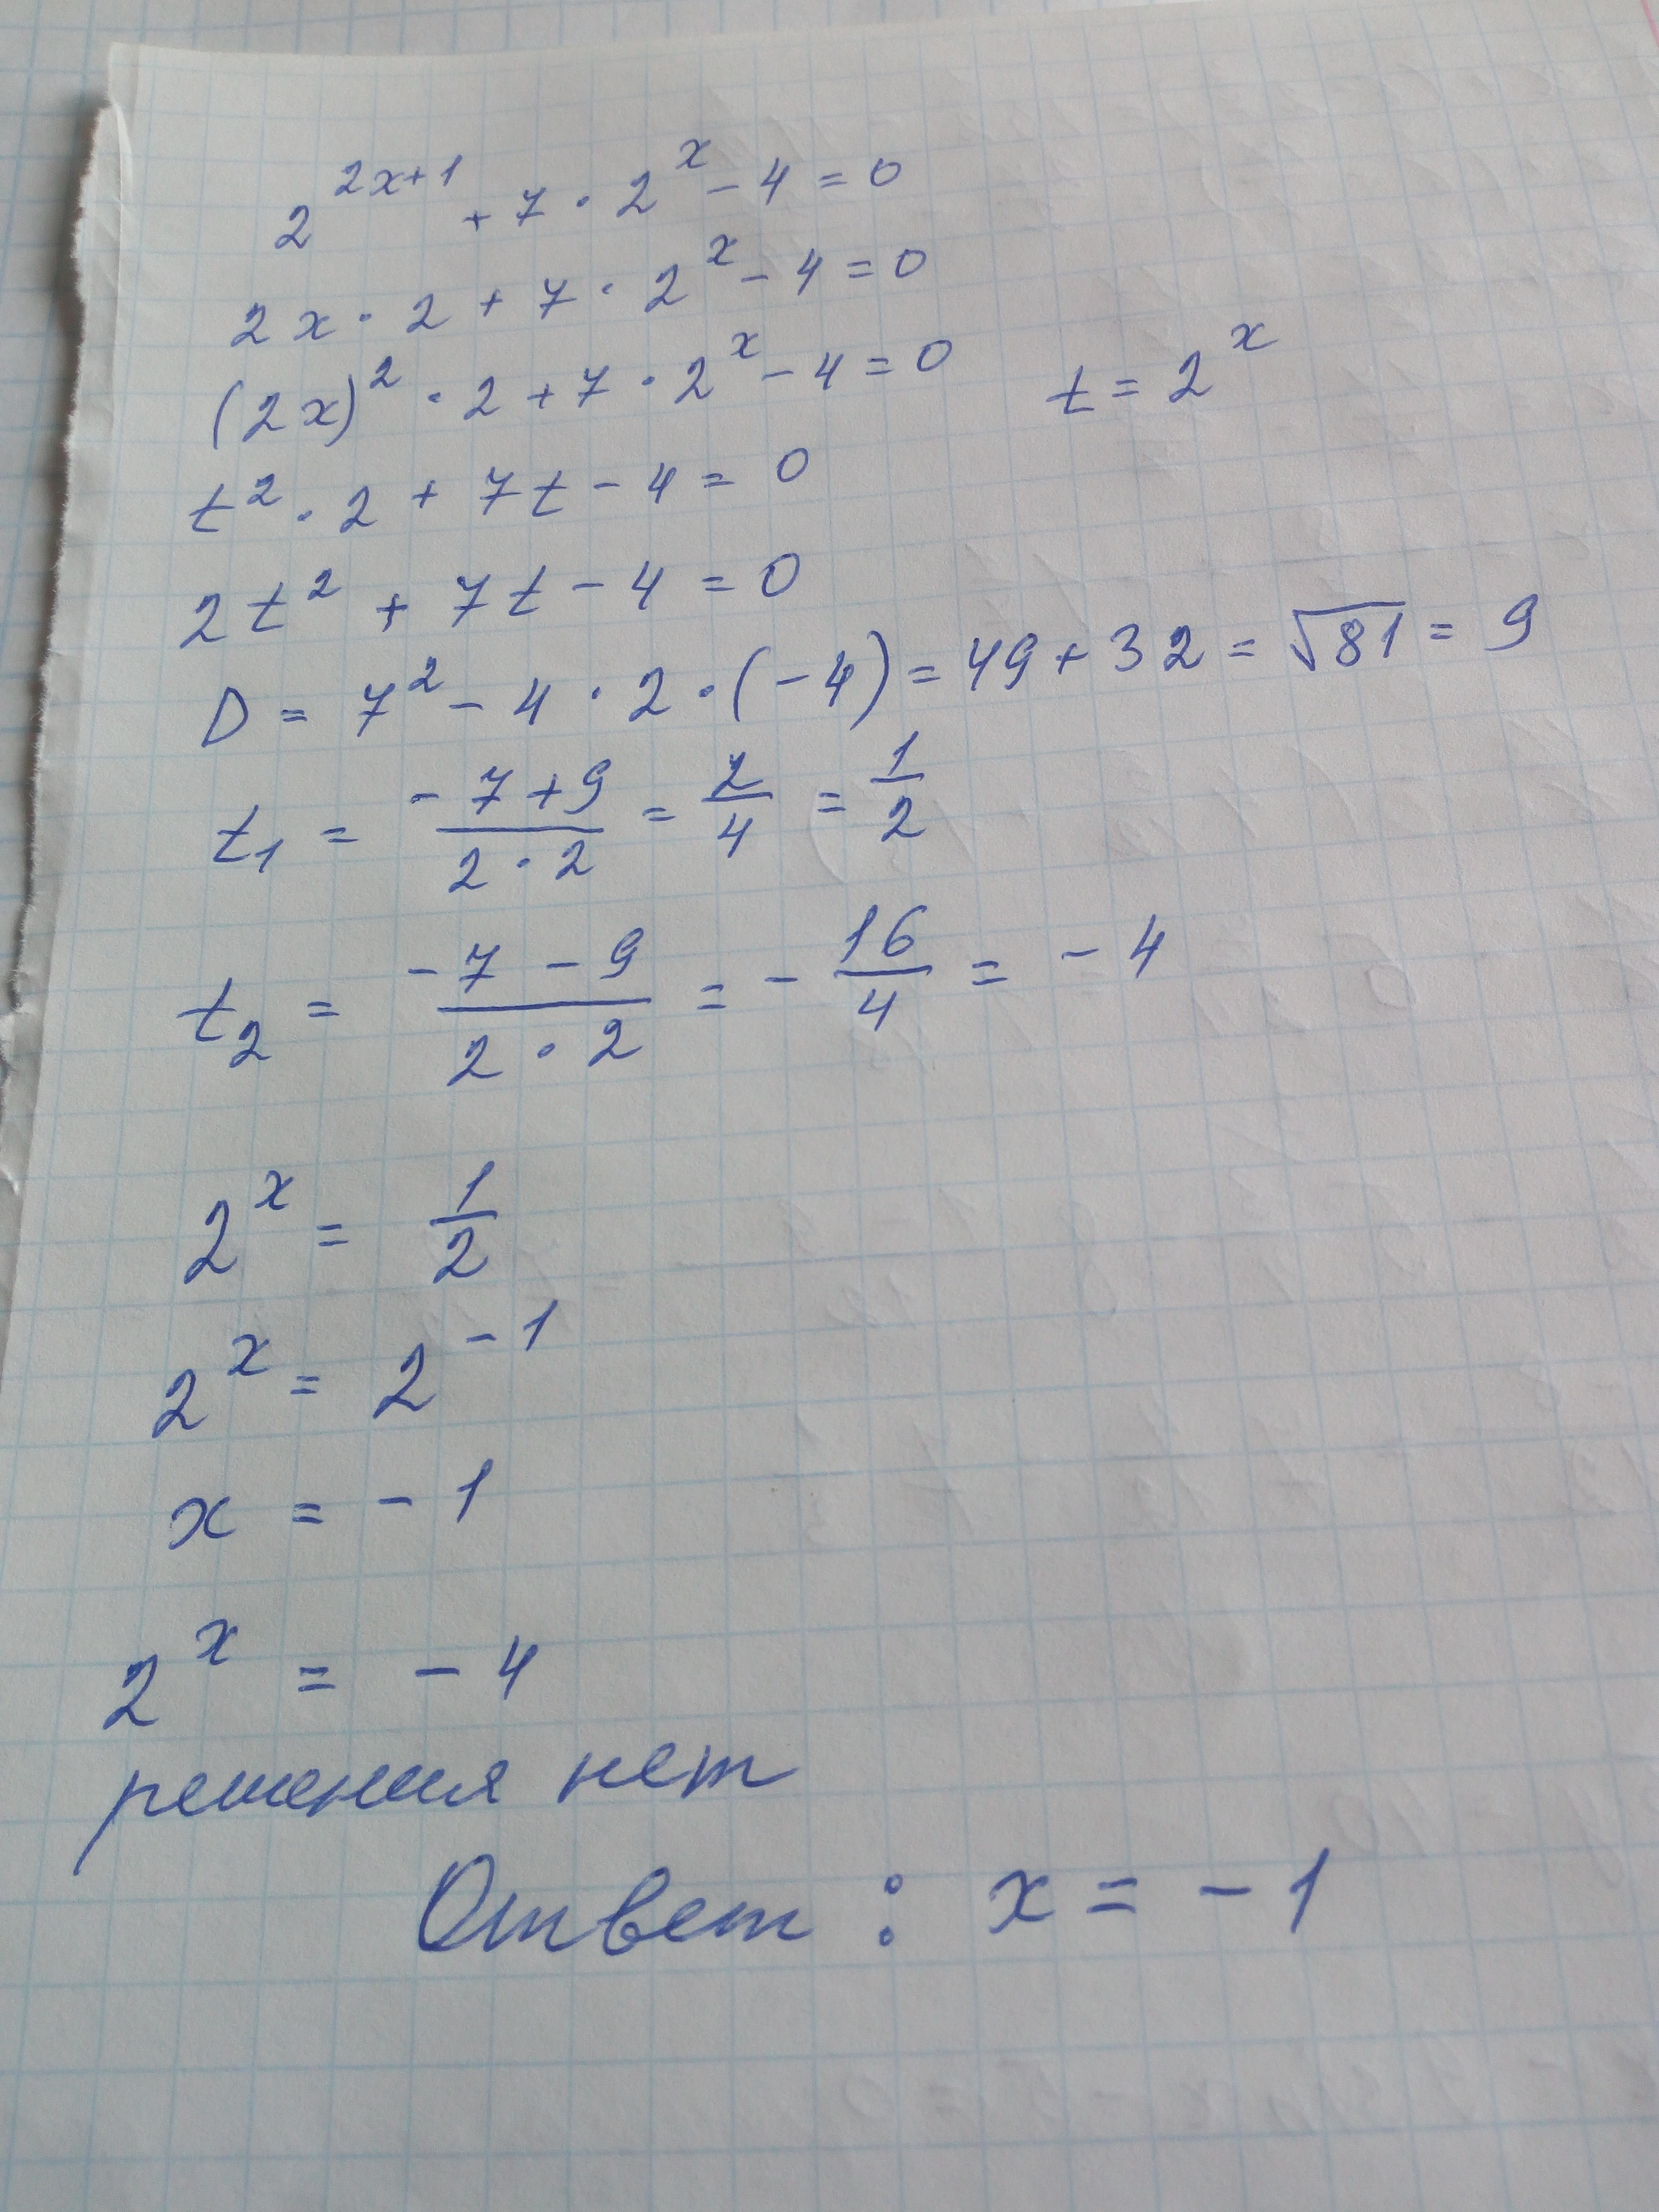 2^{2x+1} + 7 · 2^x - 4 = 0
2x · 2 + 7 · 2^x - 4 = 0
(2x)^2 · 2 + 7 · 2^x - 4 = 0 t = 2^x
t^2 · 2 + 7t - 4 = 0
2t^2 + 7t - 4 = 0
D = 7^2 - 4 · 2 · (-4) = 49 + 32 = √81 = 9
t_1 = \frac{-7+9}{2·2} = \frac{2}{4} = \frac{1}{2}
t_2 = \frac{-7-9}{2·2} = -\frac{16}{4} = -4
2^x = \frac{1}{2}
2^x = 2^{-1}
x = -1
2^x = -4
решения нет
Ответ : x = -1